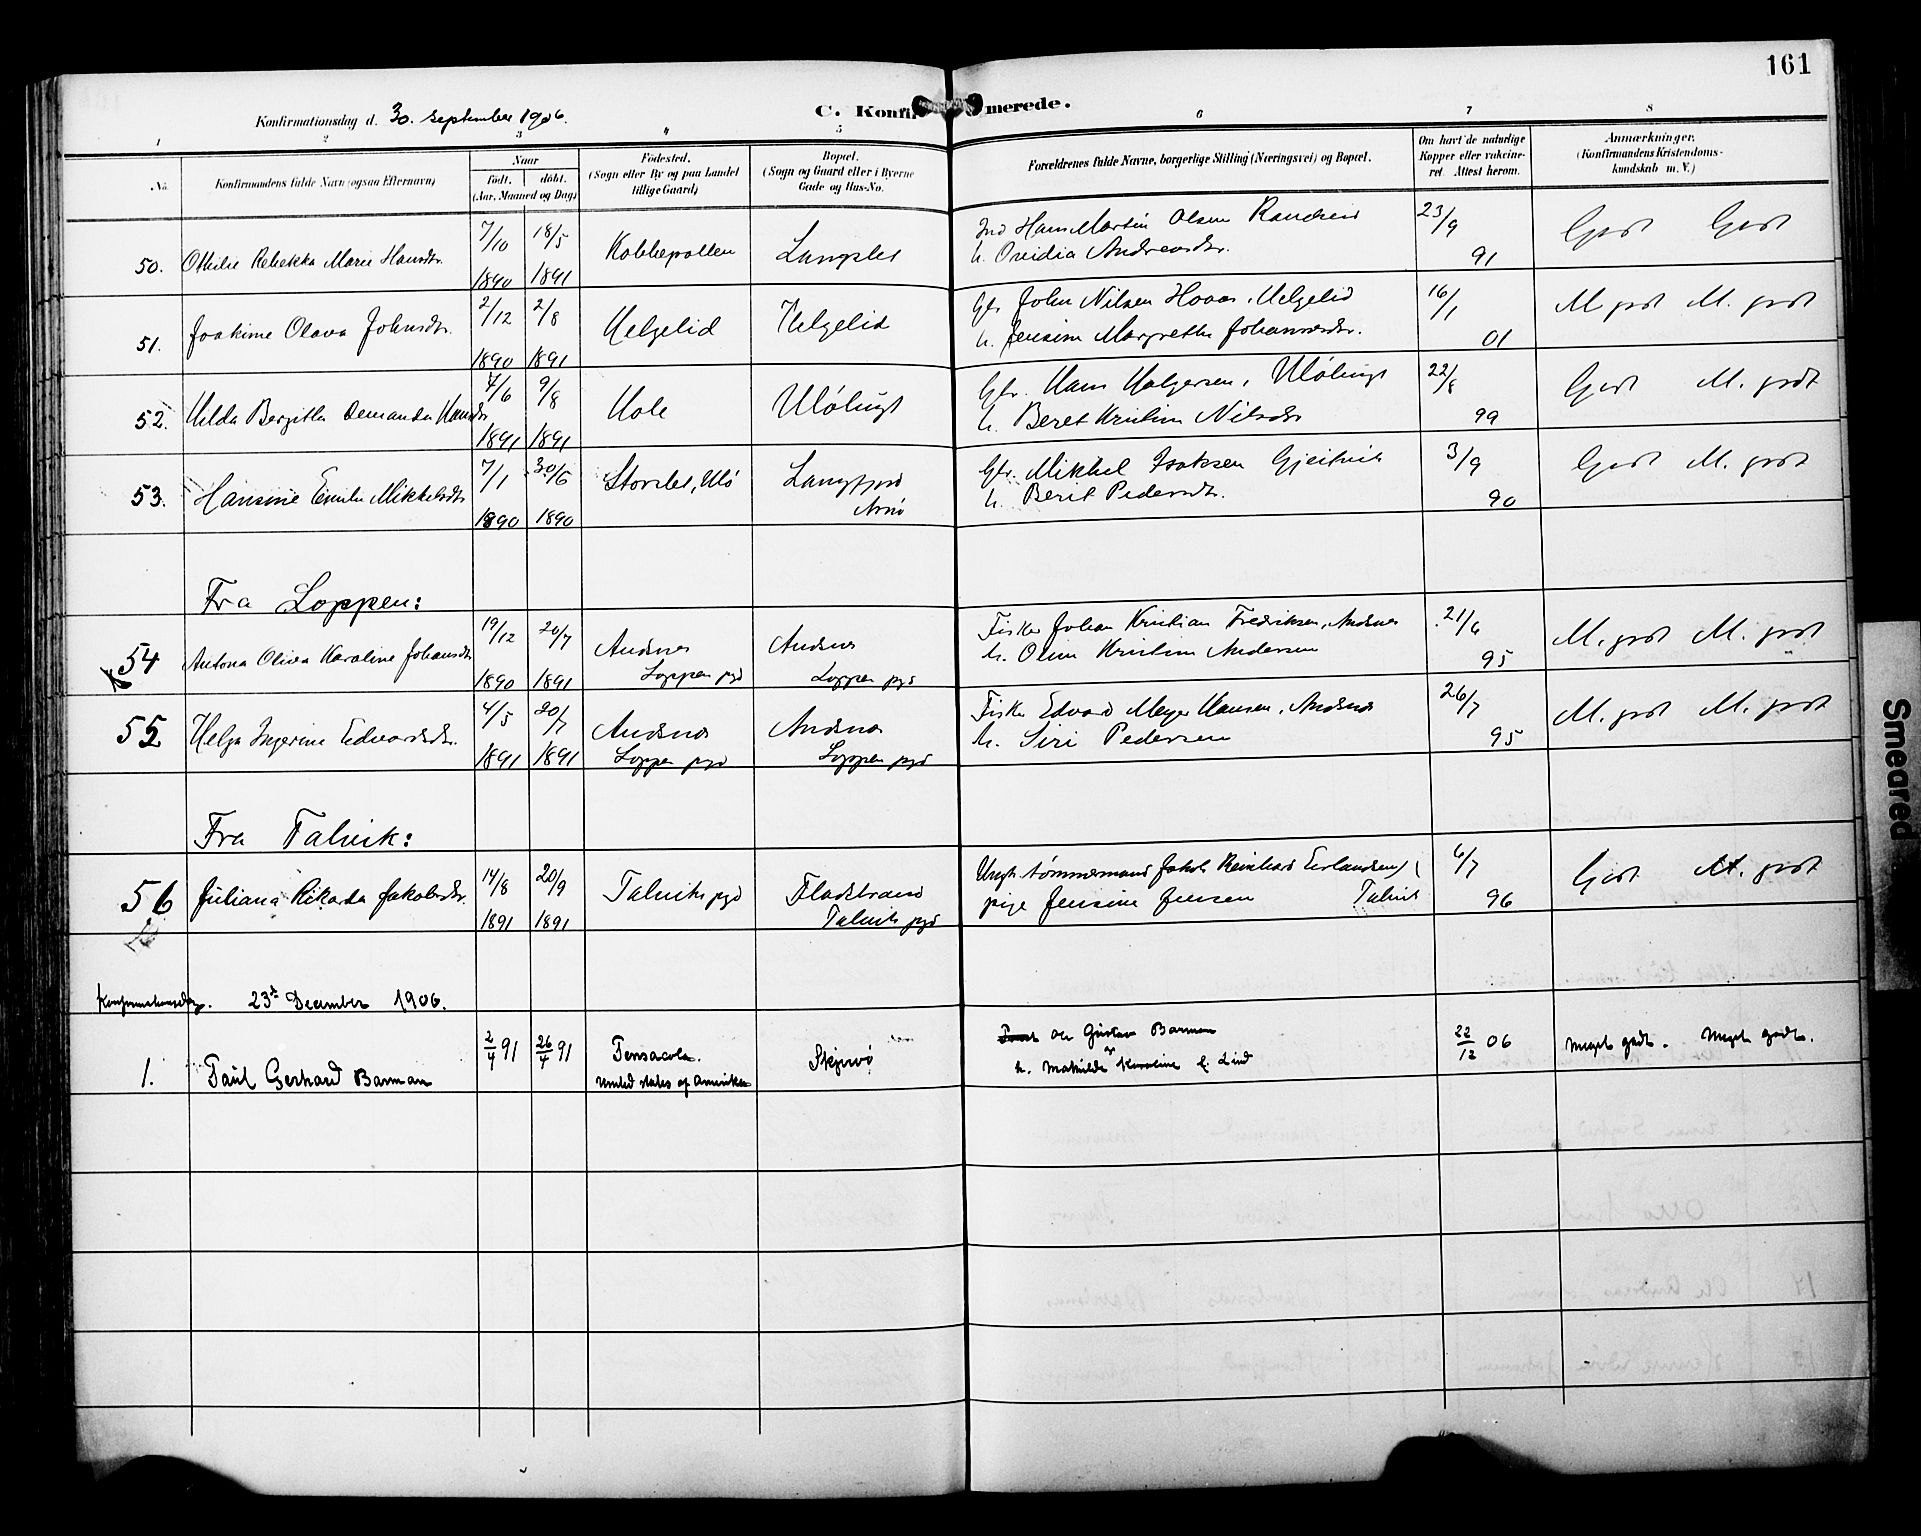 161
Konfirmationsdag d. 30. september 1906.
C. Konfirmerede.
1 2 3 4 5 6 7 8
No.
Konfirmandens fulde Navn (ogsaa Efternavn)
Naar
født. døbt.
(Aar, Maaned og Dag)
Fødested.
(Sogn eller By og paa Landet
tillige Gaard)
Bopæl.
(Sogn og Gaard eller i Byerne
Gade og Hus-No.
Forældrenes fulde Navne, borgerlige Stilling (Næringsvei) og Bopæl.
Om havt de naturlige
Kopper eller vakcine-
ret. Attest herom.
Anmærkninger.
(Konfirmandens Kristendoms-
kundskab m. V.)
50. Othilie Rebekka Marie Hansdtr. 7/10 1890 18/5 1891 Kobbepollen Langslet
Ind Hans Martin Olsen Randheid
h. Ovidia Andreasdtr. 23/9 91 Godt Godt
51. Joakime Olava Johnsdtr. 2/12 1890 2/8 1891 Helgelid Helgelid
Gbr John Nilsen Hovos, Helgelid
h. Jensine Margrethe Johannesdtr. 16/1 01 M godt M. godt
52. Hilda Bergitte Demanda Hansdtr 7/6 1891 9/8 1891 Hole Uløbugt
Gbr. Hans Holgersen, Uløbugt
h. Beret Kristine Nilsdtr 22/8 99 Godt M. godt
53. Hansine Emilie Mikkelsdtr 7/1 1890 30/6 1890 Storslet, Ulø Langfjord
Arnø
Gbr. Mikkel Isaksen Gjeitvik
h. Berit Pedersdtr. 3/9 90 Godt M. godt
Fra Loppen:
54 Antona Oliva Karoline Johansdtr 19/12 1890 20/7 1891 Andsnes
Loppen pgd Andsnes
Loppen pgd
Fisker Johan Kristian Fredriksen, Andsnes
h. Oline Kristine Andersen 21/6 95 M. godt M. godt
55 Helga Ingerine Edvardsdtr. 4/5 1891 20/7 1891 Andsnes
Loppen pgd Andsnes
Loppen pgd
Fisker Edvard Meyer Hansen, Andsnes
h. Siri Pedersen 26/7 95 M. godt M. godt
Fra Talvik:
56 Juliana Rikarda Jakobsdtr. 14/8 1891 20/9 1891 Talviks pgd Fladstrand
Talviks pgd
Ungk. tømmermand Jakob Reinhard Erlandsen
pige Jensine Jensen Talvik 6/7 96 Godt M. godt
Konfirmationsdag. 23d December 1906.
1. Paul Gerhard Barman 2/4 91 26/4 91 Pensacola.
United states of Amerika Skjervø
Ole Gustav Barman
h. Mathilde Karoline f. Lind 22/12 06 Meget godt. Meget godt.
Smeared